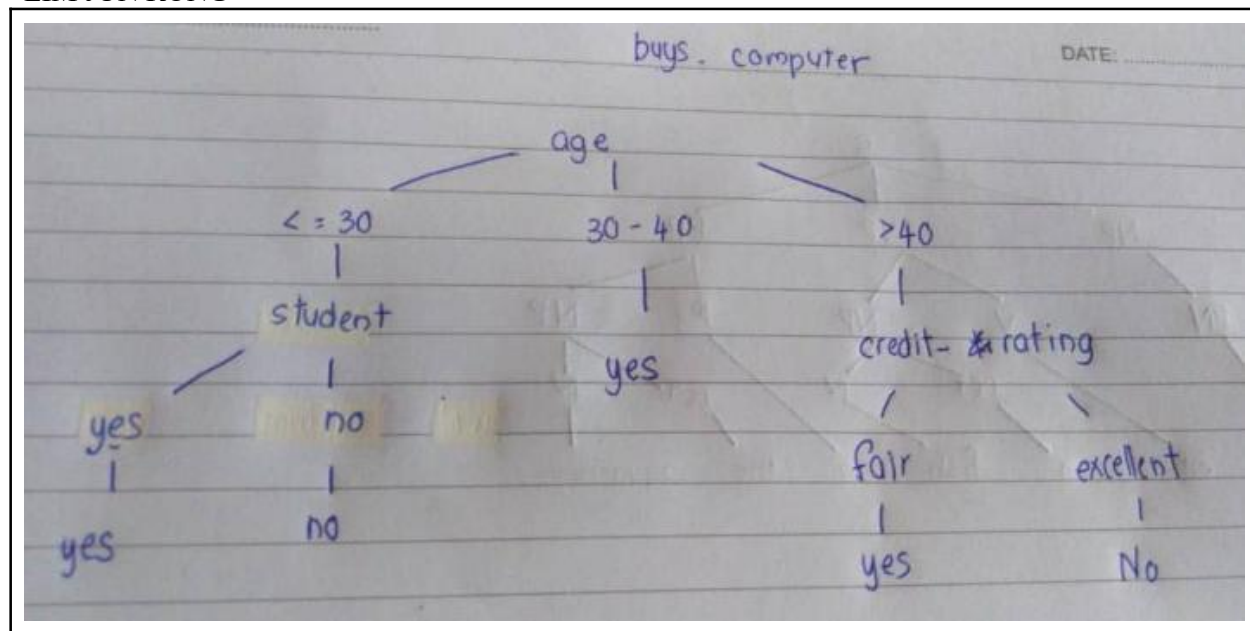 buys. computer
DATE:
age
< = 30 30 - 40 >40
student
credit- rating
yes no yes
fair excellent
yes no
yes No